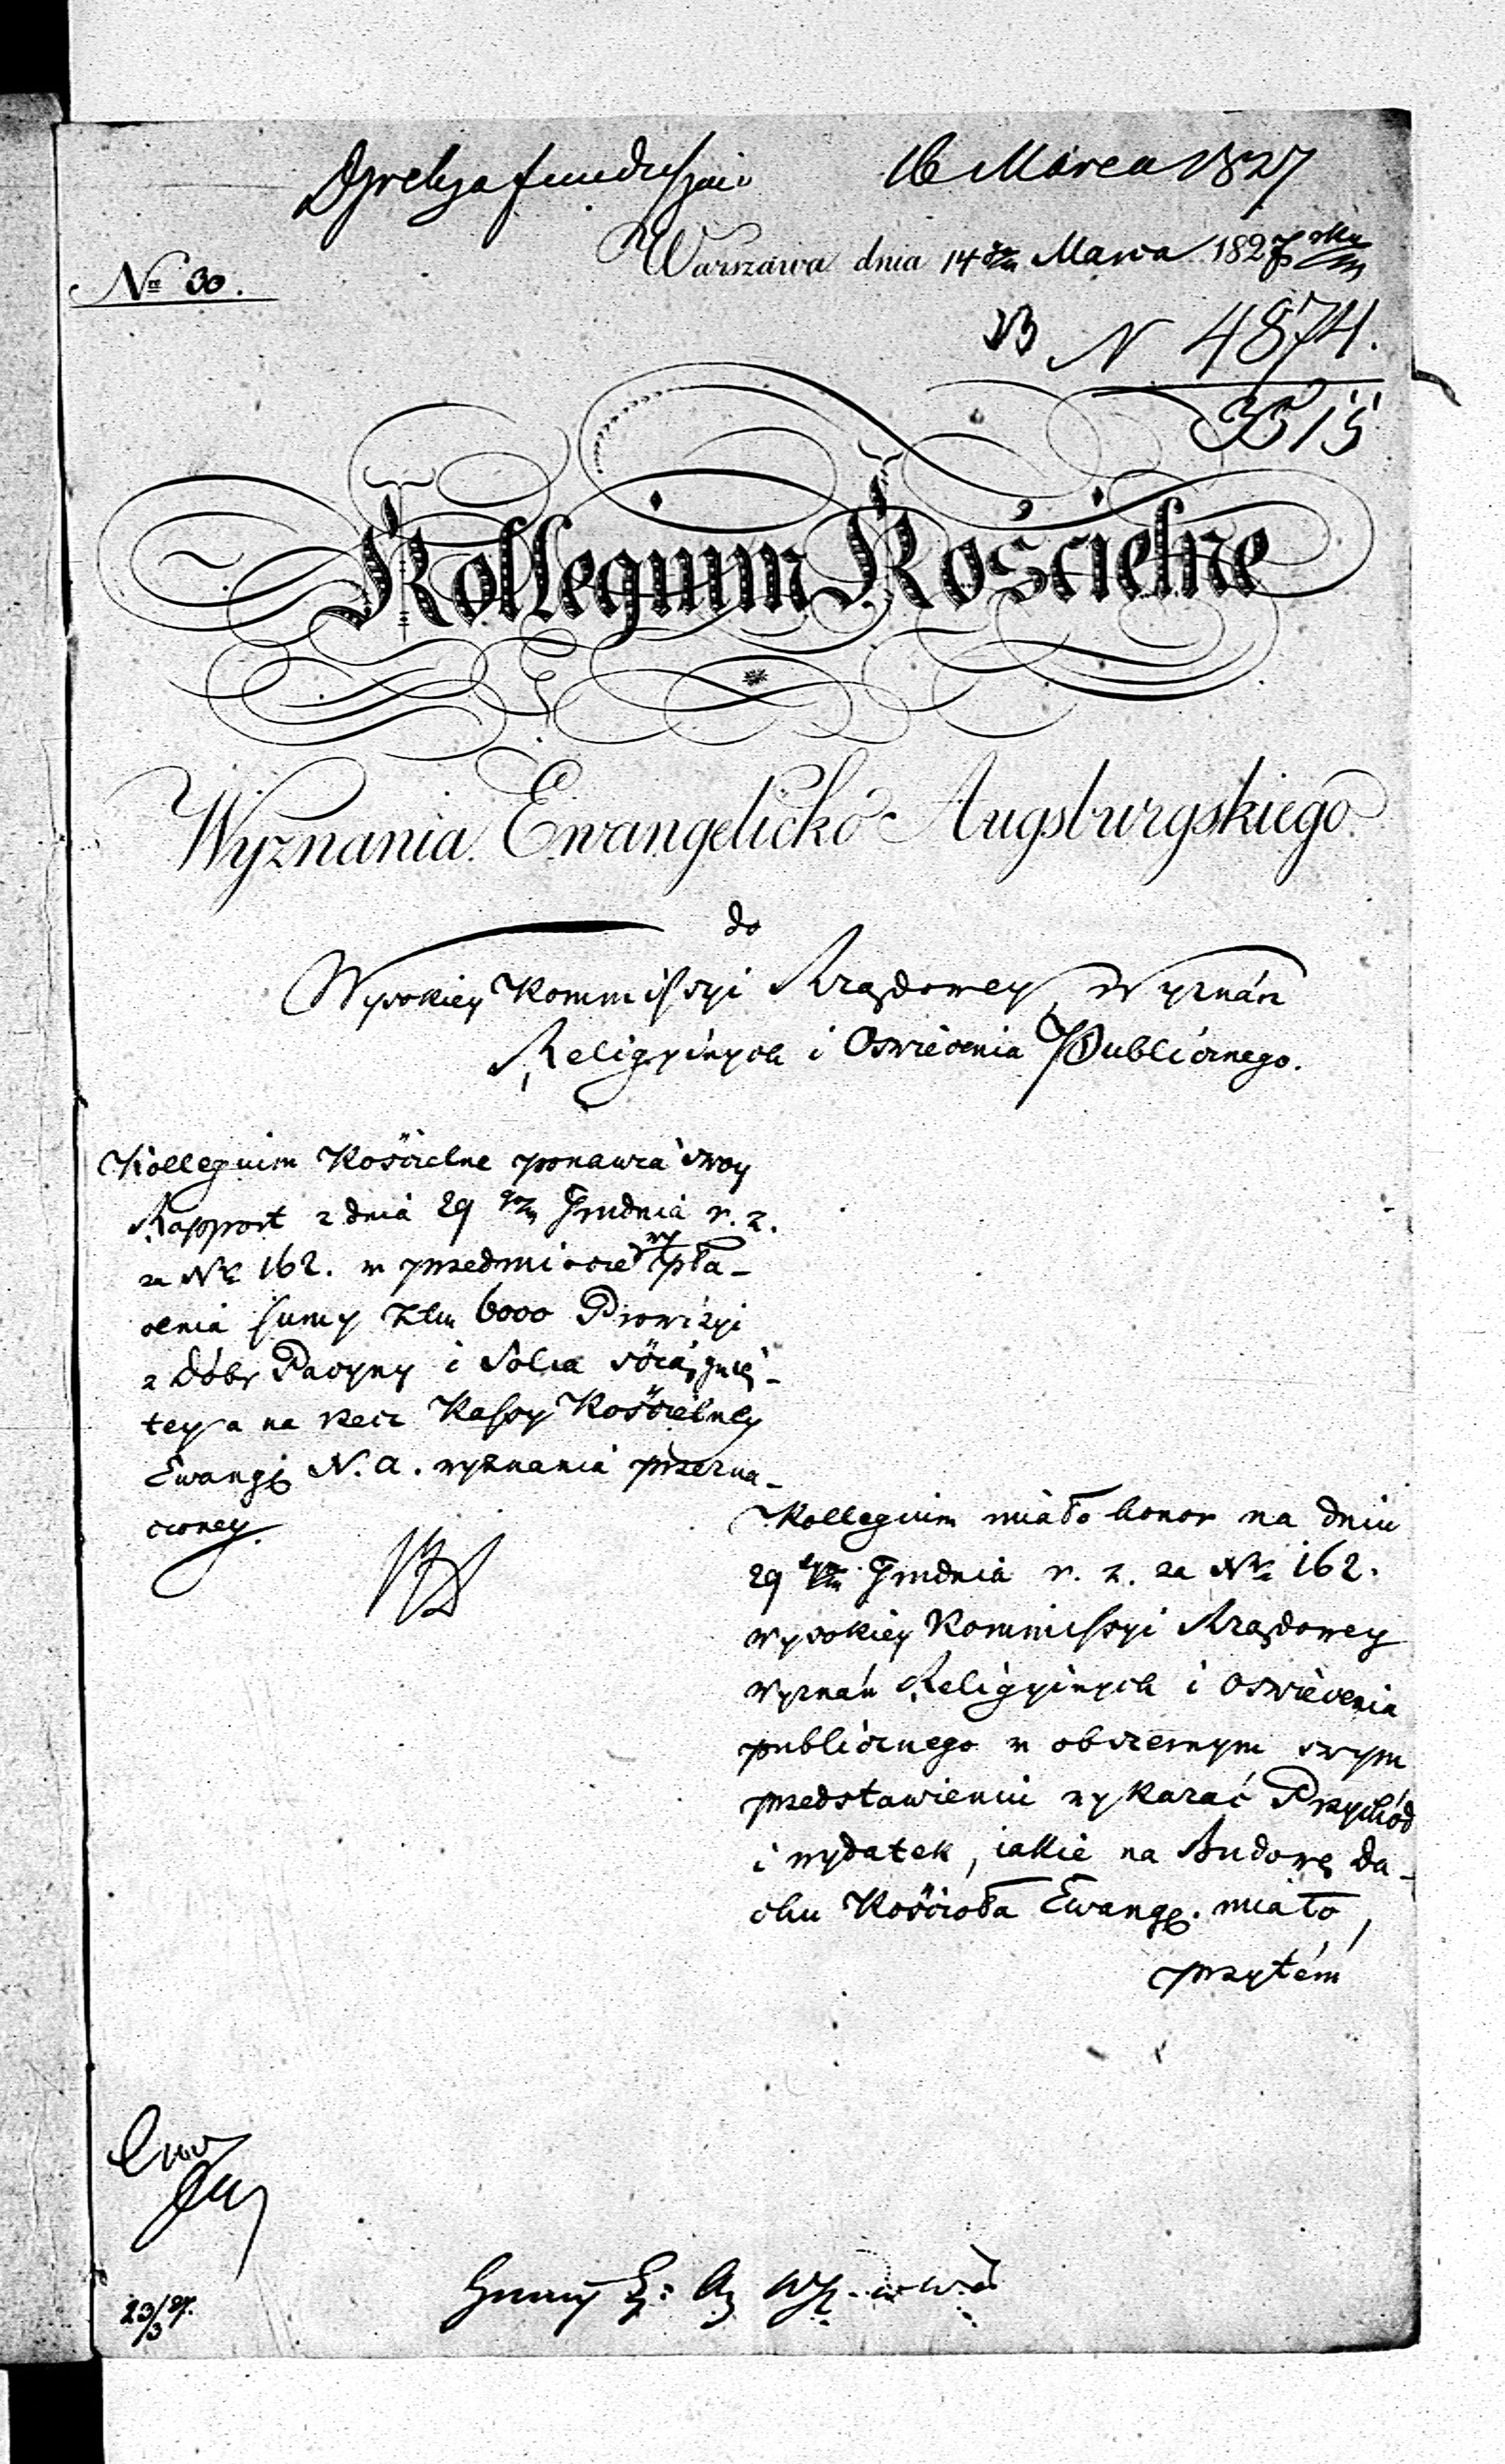 Dyrekcya funduszów 16 Marca 1827
Warszawa dnia 14go Marca 1827
Nro 30.
N 4874.
3515
Kollegium Kościelne
Wyznania Ewangelicko Augsburgskiego.
do
Wysokiey Kommissyi Rządowey Wyznań
Religyinych i Oswiecenia Publicznego.
Kollegium Kościelne ponawia swoy
Rapport z dnia 29 go Grudnia r. z.
za Nr 162. w przedmiocie wypła-
cenia sumy Złtt 6000 Prowizyi
z dóbr Pacyny i Solca ściągnię-
tey a na rzecz Kassy Kościelney
Ewangę N. A. wyznania przezna-
czoney.
Kollegium miało honor na dniu
29 Grudnia r. z. za Nr 162.
wysokiey Kommissyi Rządowey
wyznań Religyinych i Oswiecenia
publicznego w obszernym swym
przedstawieniu wykazać Przychód
i wydatek, iakie na Budowę da-
chu Kościoła Ewangę. miało,
przytém
23/3 27.